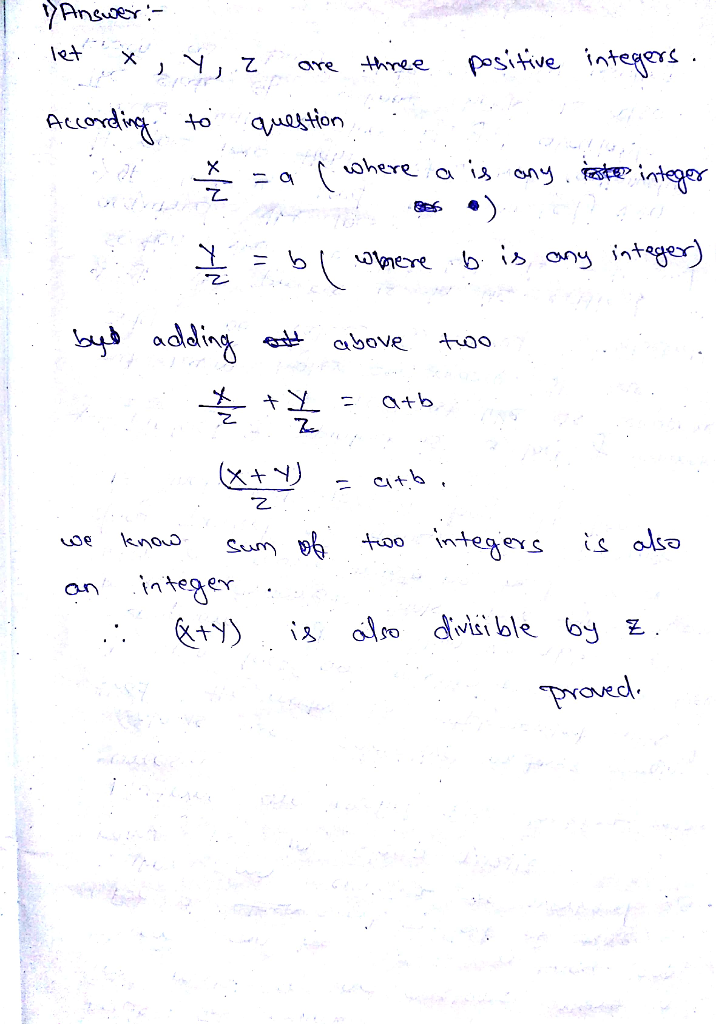 1) Answer :-
let x, y, z are three positive integers.
According to question
x/z = a ( where a is any integer
)
y/z = b ( where b is any integer)
by adding above two
x/z + y/z = a+b
(x+y)/z = a+b.
we know sum of two integers is also
an integer.
∴ (x+y) is also divisible by z.
proved.